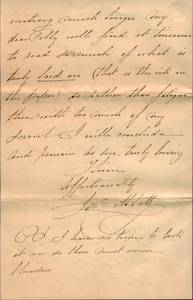 much longer my
dear Felly will find it tiresome
to read so much of what is
truly laid on (that is the ink on
the paper) so rather than fatigue
thee with too much of my
scrawl I will conclude
and remain as ever, truly loving
Affectionately
P.S. I have no time to look
it over so thee must excuse
Blunders